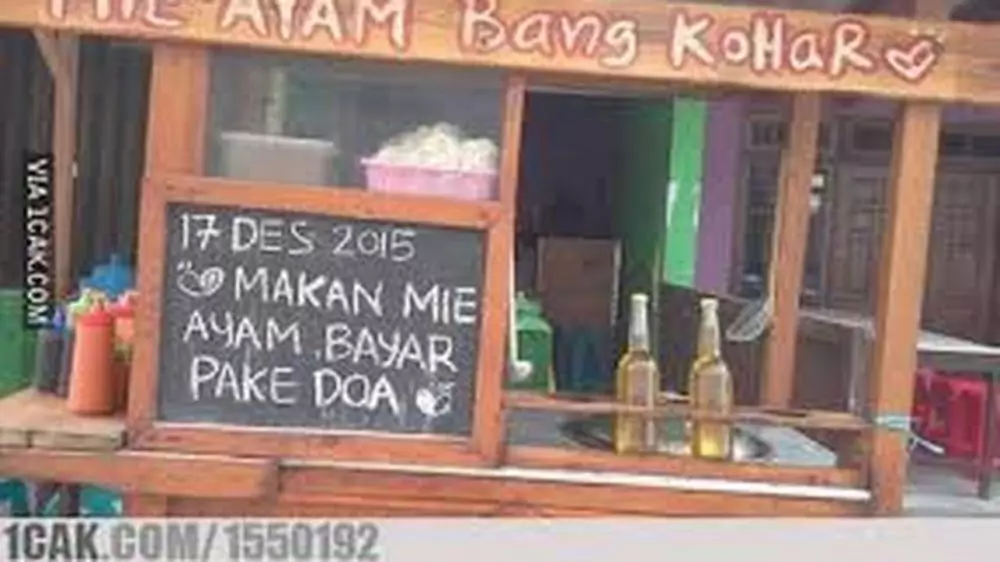 MIE AYAM Bang KoHaR
VIA 1CAK.COM
17 DES 2015
MAKAN MIE
AYAM . BAYAR
PAKE DOA
1CAK.COM/1550192